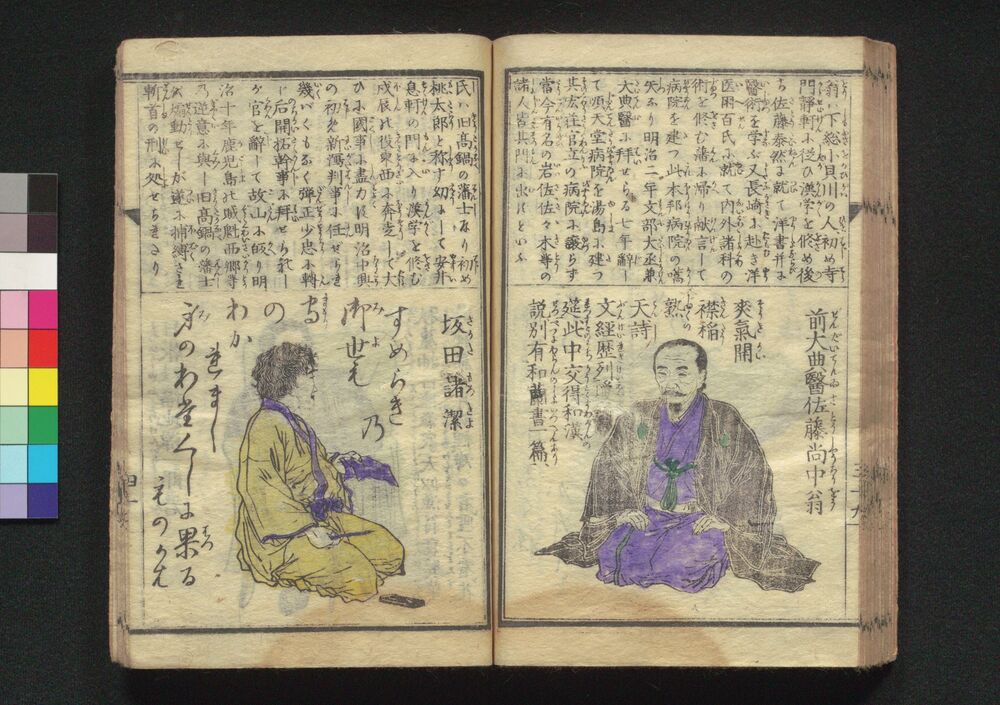 翁ハ下総小貝川の人初め寺
門静軒に従ひ漢学を修め後
ち佐藤泰然に就て洋書并に
醫術を学ふ又長崎に赴き洋
医朋百氏に就て内外諸科の
術を修む藩に帰り献言して
病院を建つ此本邦病院の嚆
矢なり明治二年文部大丞兼
大典醫に拝せらる七年辭し
て順天堂病院を湯島に建つ
其宏壮官立の病院に譲らず
當今有名の岩佐佐々木等の
諸人皆其門に出るといふ
前大典醫佐藤尚中翁
爽氣開
襟稲
熟
天詩
文経歴列
筵此中交得和漢
説別有和蘭畫一篇
三十九
氏ハ旧高鍋の藩士なり初め
桃太郎と称す幼にして安井
息軒の門に入り漢学を修む
戊辰の役東西に奔走して大
ひに國事に盡力す明治中興
の初め新潟判事に任せらる
幾バくもなく弾正少忠に轉
し后開拓幹事に拝せられし
が官を辭して故山に皈り明
治十年鹿児島の賊魁西郷等
乃逆意に與し旧高鍋の藩士
を煽動せしが遂に捕縛され
斬首の刑に処せられたり
坂田諸潔
すめらき
乃
御世を
守
の
わか
れまし
身のわざくしに果る
ものかは
四十